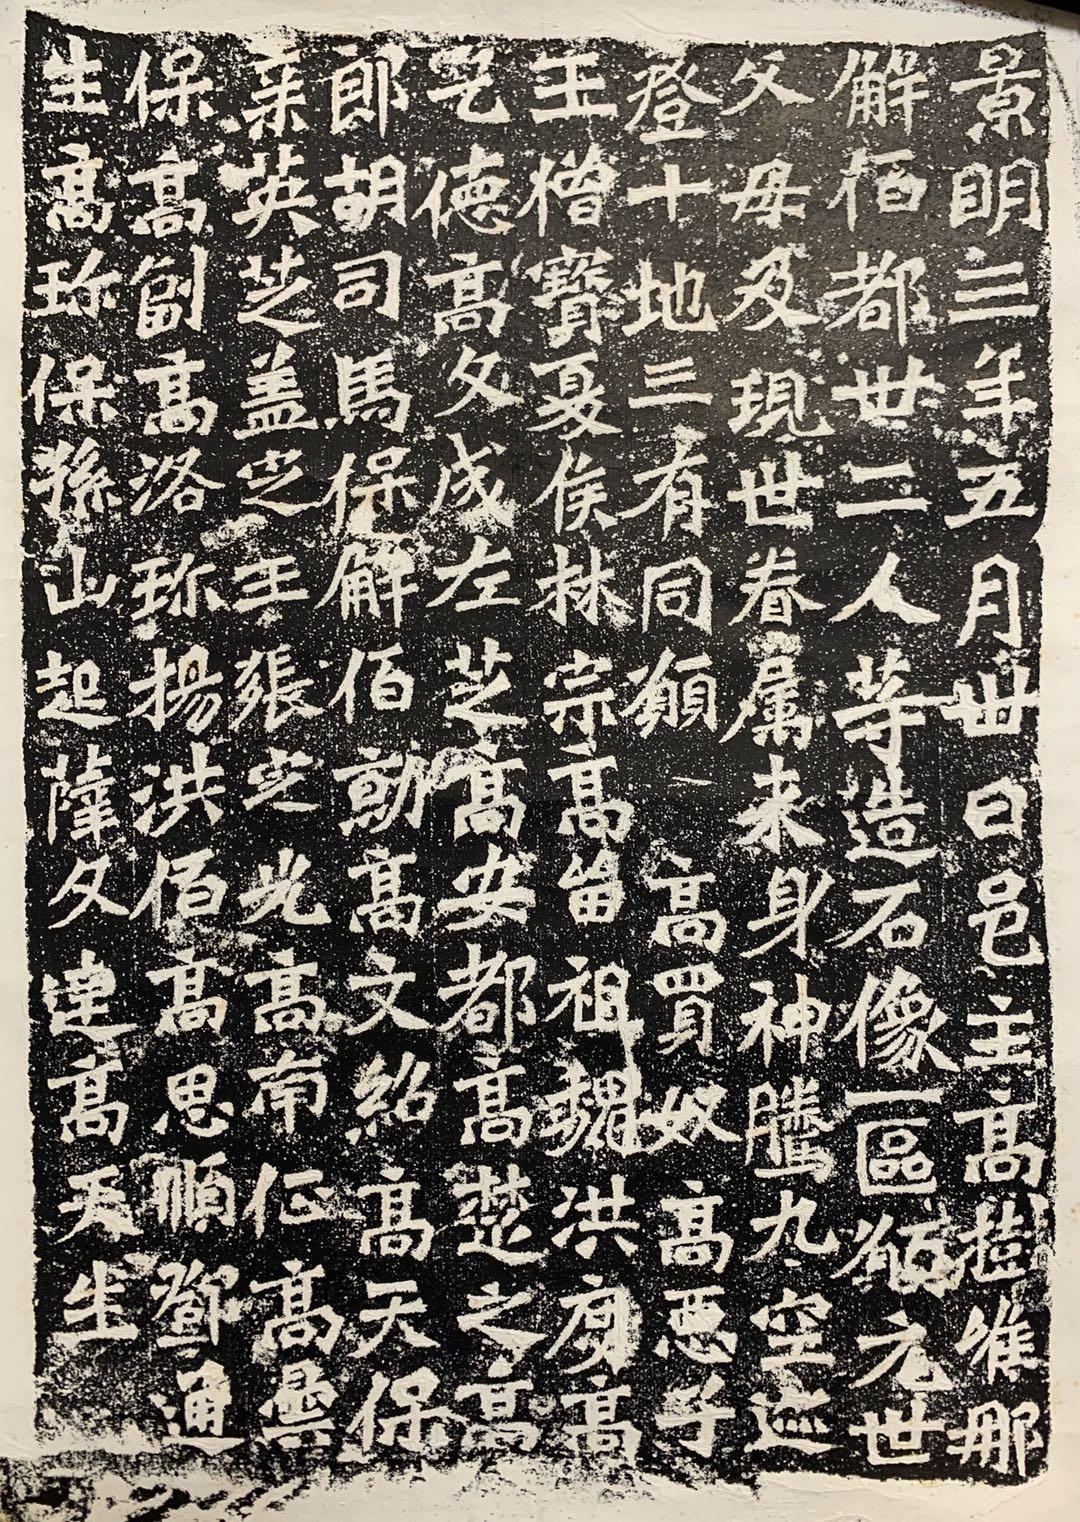 景明三年五月卅日邑主高樹唯那
解佰都卅二人等造石像一區願元世
父母及現世眷属来身神騰九空迹
登十地三有同願 高買奴高惡子
王僧寶夏侯林宗高留祖魏洪度高
乞德高文成左芝高安都高楚之高
郎胡司馬保解佰勍高文紹高天保
亲英芝盖定王張定光高南征高曇
保高副高洛珎楊洪佰高思順鄧通
生高珎保孫山起薩文達高天生